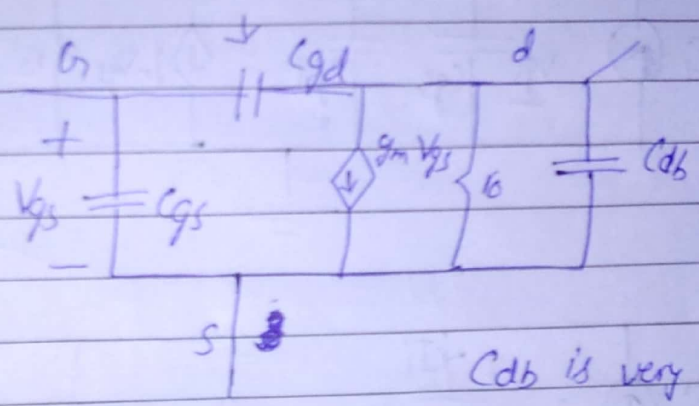 G Cgd d
+
gm Vgs
Vgs Cgs ro Cdb
-
S
Cdb is very